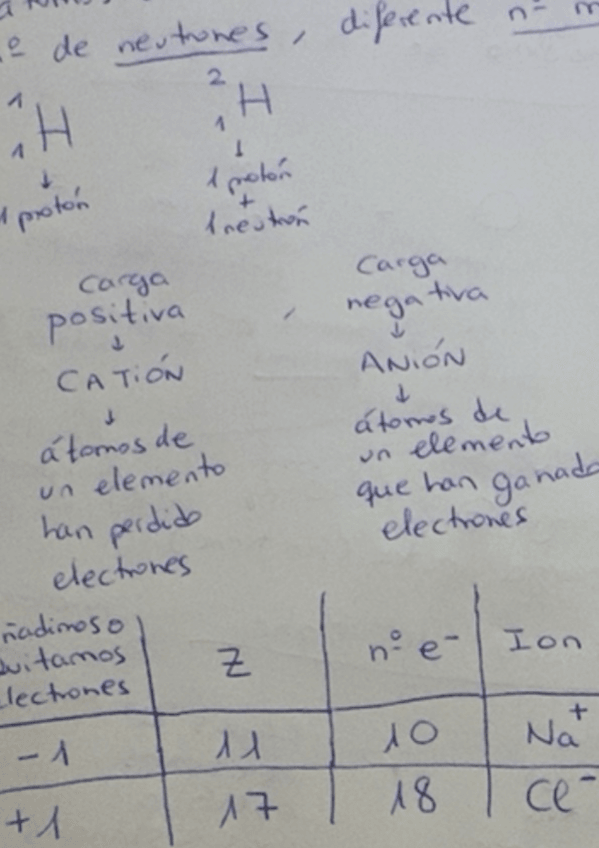 nº de neutrones, diferente nº m
1 1 H
2 1 H
↓
1 protón
↓
1 protón
+
1 neutrón
carga
positiva
↓
CATIÓN
↓
átomos de
un elemento
han perdido
electrones
carga
negativa
↓
ANIÓN
↓
átomos de
un elemento
que han ganado
electrones
ñadimos o
uitamos
lectrones
Z
nº e⁻
Ion
-1
11
10
Na⁺
+1
17
18
Cl⁻